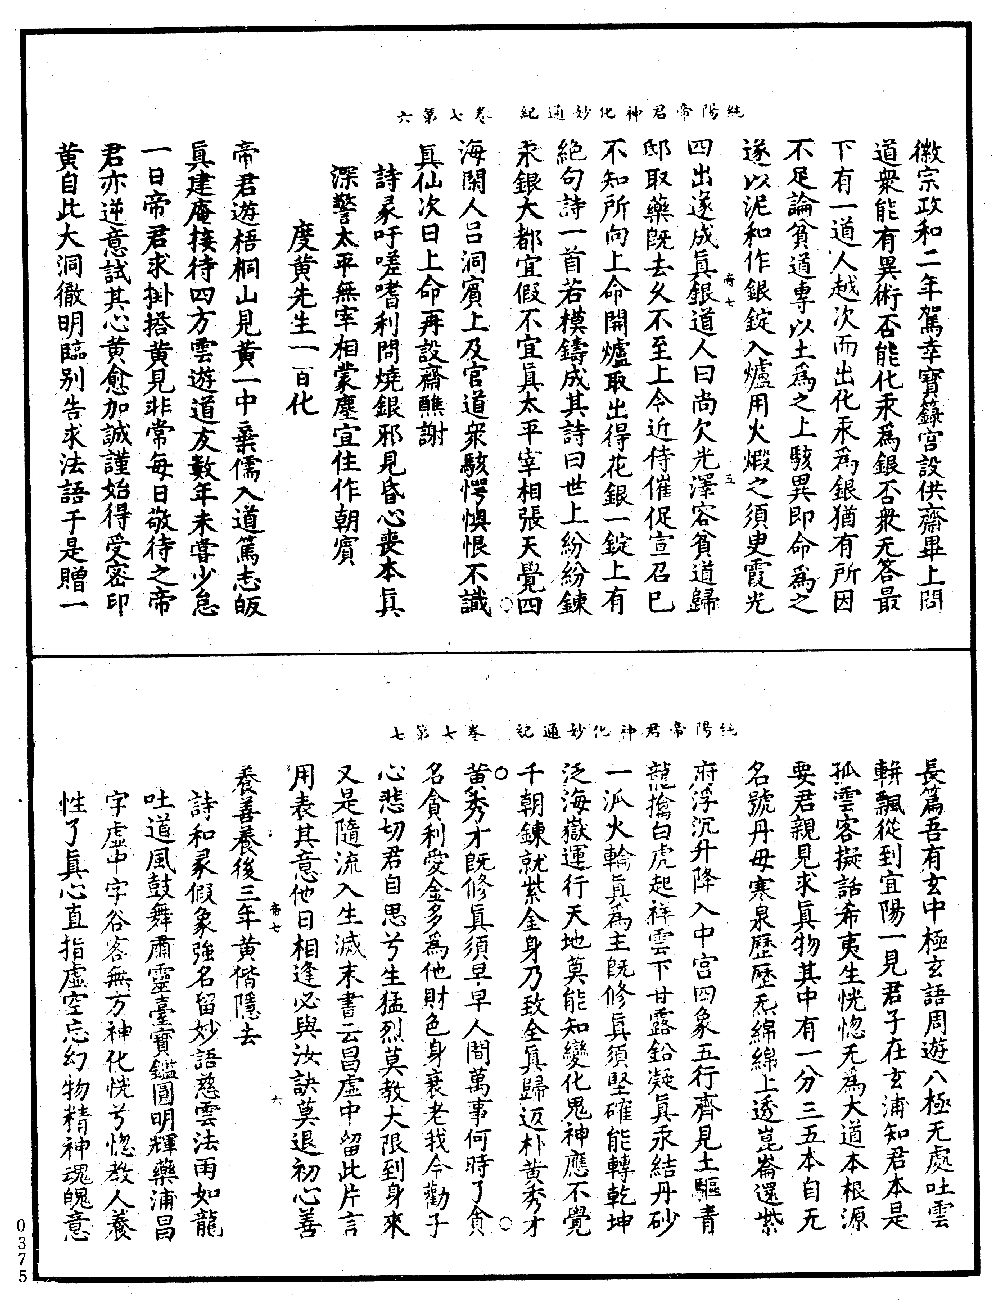 純陽帝君神化妙通紀　卷七第六
徽宗政和二年駕幸寶籙宮設供齋畢上問
道衆能有異術否能化汞爲銀否衆无答最
下有一道人越次而出化汞爲銀猶有所因
不足論貧道專以土爲之上駭異即命爲之
遂以泥和作銀錠入爐用火煆之須臾霞光
四出遂成真銀道人曰尚欠光澤容貧道歸
邸取藥旣去久不至上令近侍催促宣召巳
不知所向上命開爐取出得花銀一錠上有
絶句詩一首若模鑄成其詩曰世上紛紛鍊
汞銀大都宜假不宜真太平宰相張天覺四
海閑人呂洞賓上及官道衆駭愕懊恨不識
真仙次日上命再設齋醮謝
詩彖吁嗟嗜利問燒銀邪見昏心喪本真
深警太平無宰相蒙塵宜住作朝賓
度黃先生一百化
帝君遊梧桐山見黃一中棄儒入道篤志皈
真建庵接待四方雲遊道友數年未嘗少怠
一日帝君求掛搭黃見非常每日敬待之帝
君亦逆意試其心黄愈加誠謹始得受密印
黄自此大洞徹明臨别告求法語于是贈一
純陽帝君神化妙通紀　卷七第七
長篇吾有玄中極玄語周遊八極无處吐雲
軿飄從到宜陽一見君子在玄浦知君本是
孤雲客擬話希夷生恍惚无爲大道本根源
要君親見求真物其中有一分三五本自无
名號丹母寒泉歷歷炁綿綿上透崑崙還紫
府浮沉升降入中宮四象五行齊見土驅青
龍擒白虎起祥雲下甘露鉛凝真汞結丹砂
一泒火輪真為主旣修真須堅確能轉乾坤
泛海嶽運行天地莫能知變化鬼神應不覺
千朝鍊就紫金身乃致全真歸返朴黄秀才
黄秀才旣修真須早早人間萬事何時了貪
名貪利愛金多為他財色身衰老我今勸子
心悲切君自思兮生猛烈莫教大限到身來
又是隨流入生滅末書云昌虛中留此片言
用表其意他日相逢必與汝訣莫退初心善
養善養後三年黄偕隱去
詩和彖假象強名留妙語慈雲法雨如龍
吐道風鼓舞肅靈臺寳鑑圓明輝藥浦昌
字虛中字谷客無方神化恍兮惚教人養
性了真心直指虛空忘幻物精神魂魄意
帝七
五
帝七
六
0375